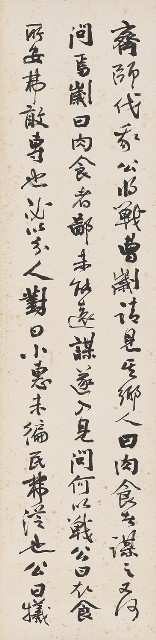 齊師伐我公將戰曹劌請見其鄉人曰肉食者謀之又何
間焉劌曰肉食者鄙未能遠謀遂入見問何以戰公曰衣食
所安弗敢專也必以分人對曰小惠未徧民弗從也公曰犧